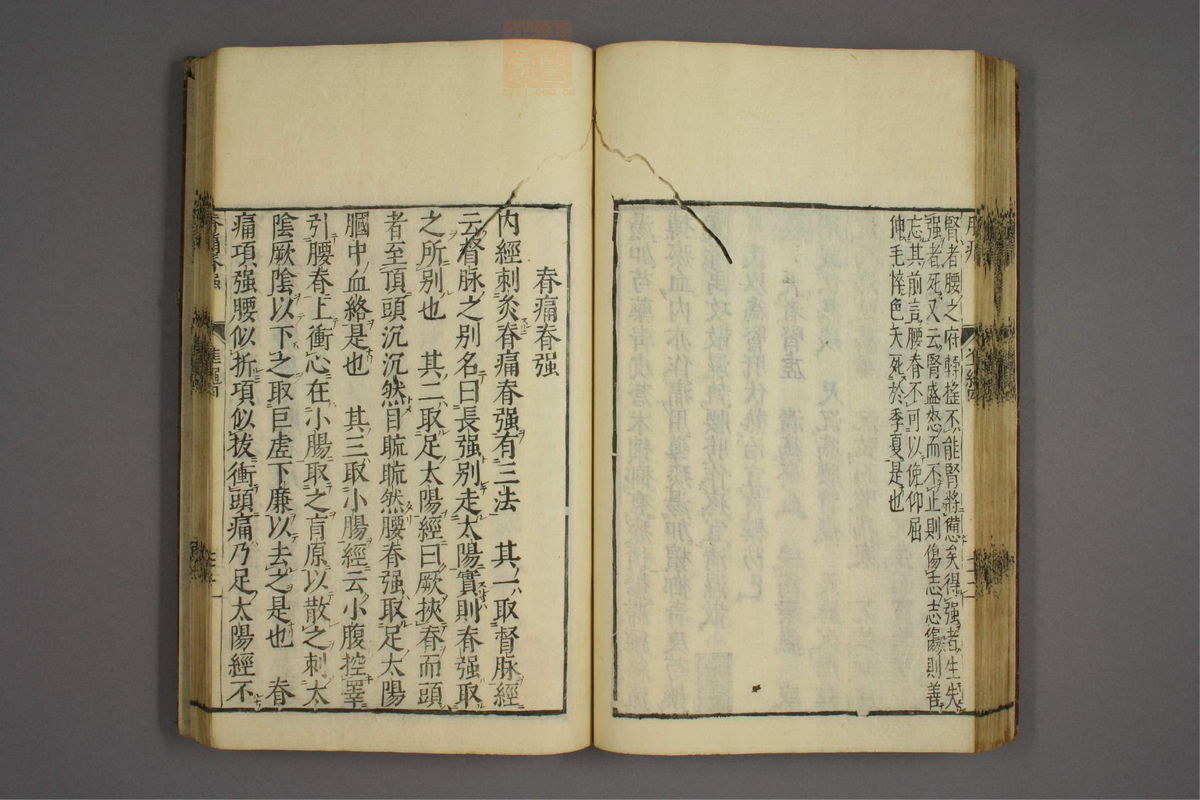 腎者腰之府轉搖不能腎將憊矣得強者生失
強者死又云腎盛怒而不止則傷志志傷則善
忘其前言腰脊不可以俛仰屈
伸毛悴色夭死於季夏是也
脊痛脊强
内經刺灸脊痛脊强有三法　其一取督脉經
云督脉之别名曰長强别走太陽實則脊强取
之所别也　其二取足太陽經曰厥挾脊而頭
者至頂頭沉沉然目䀮䀮然腰脊强取足太陽
膕中血絡是也　其三取小腸經云小腹控睪
引腰脊上衝心在小腸取之肓原以散之刺太
陰厥陰以下之取巨虚下廉以去之是也　脊
痛項强腰似折項似拔衝頭痛乃足太陽經不
脊痛脊强